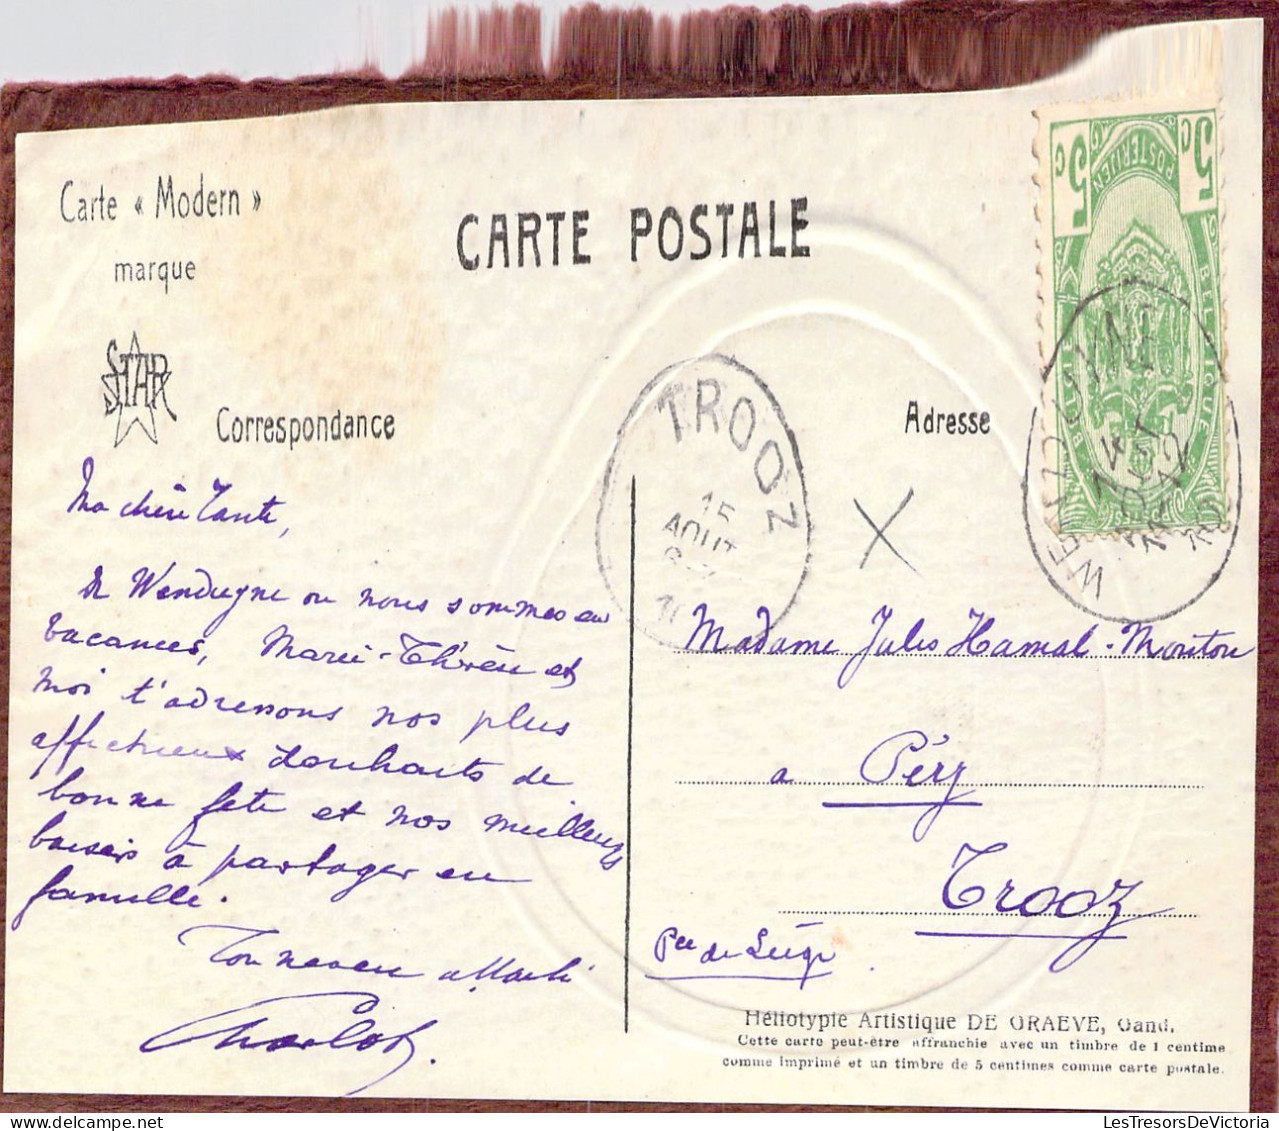 Carte « Modern »
marque
STAR
CARTE POSTALE
Correspondance
Adresse
5c
5c
POSTERIJEN
BELGIQUE
TROOZ
15
AOUT
Ma chère Tante,
De Wenduyne ou nous sommes en
vacances, Marie-Thérèse et
moi t'adressons nos plus
affectueux souhaits de
bonne fête et nos meilleurs
baisers à partager en
famille.
Ton neveu
Charlot.
Madame Jules Hamal-Mouton
a Péry
Trooz
Pce de Liége
Héliotypie Artistique DE GRAEVE, Gand.
Cette carte peut-être affranchie avec un timbre de 1 centime
comme imprimé et un timbre de 5 centimes comme carte postale.
LesTresorsDeVictoria